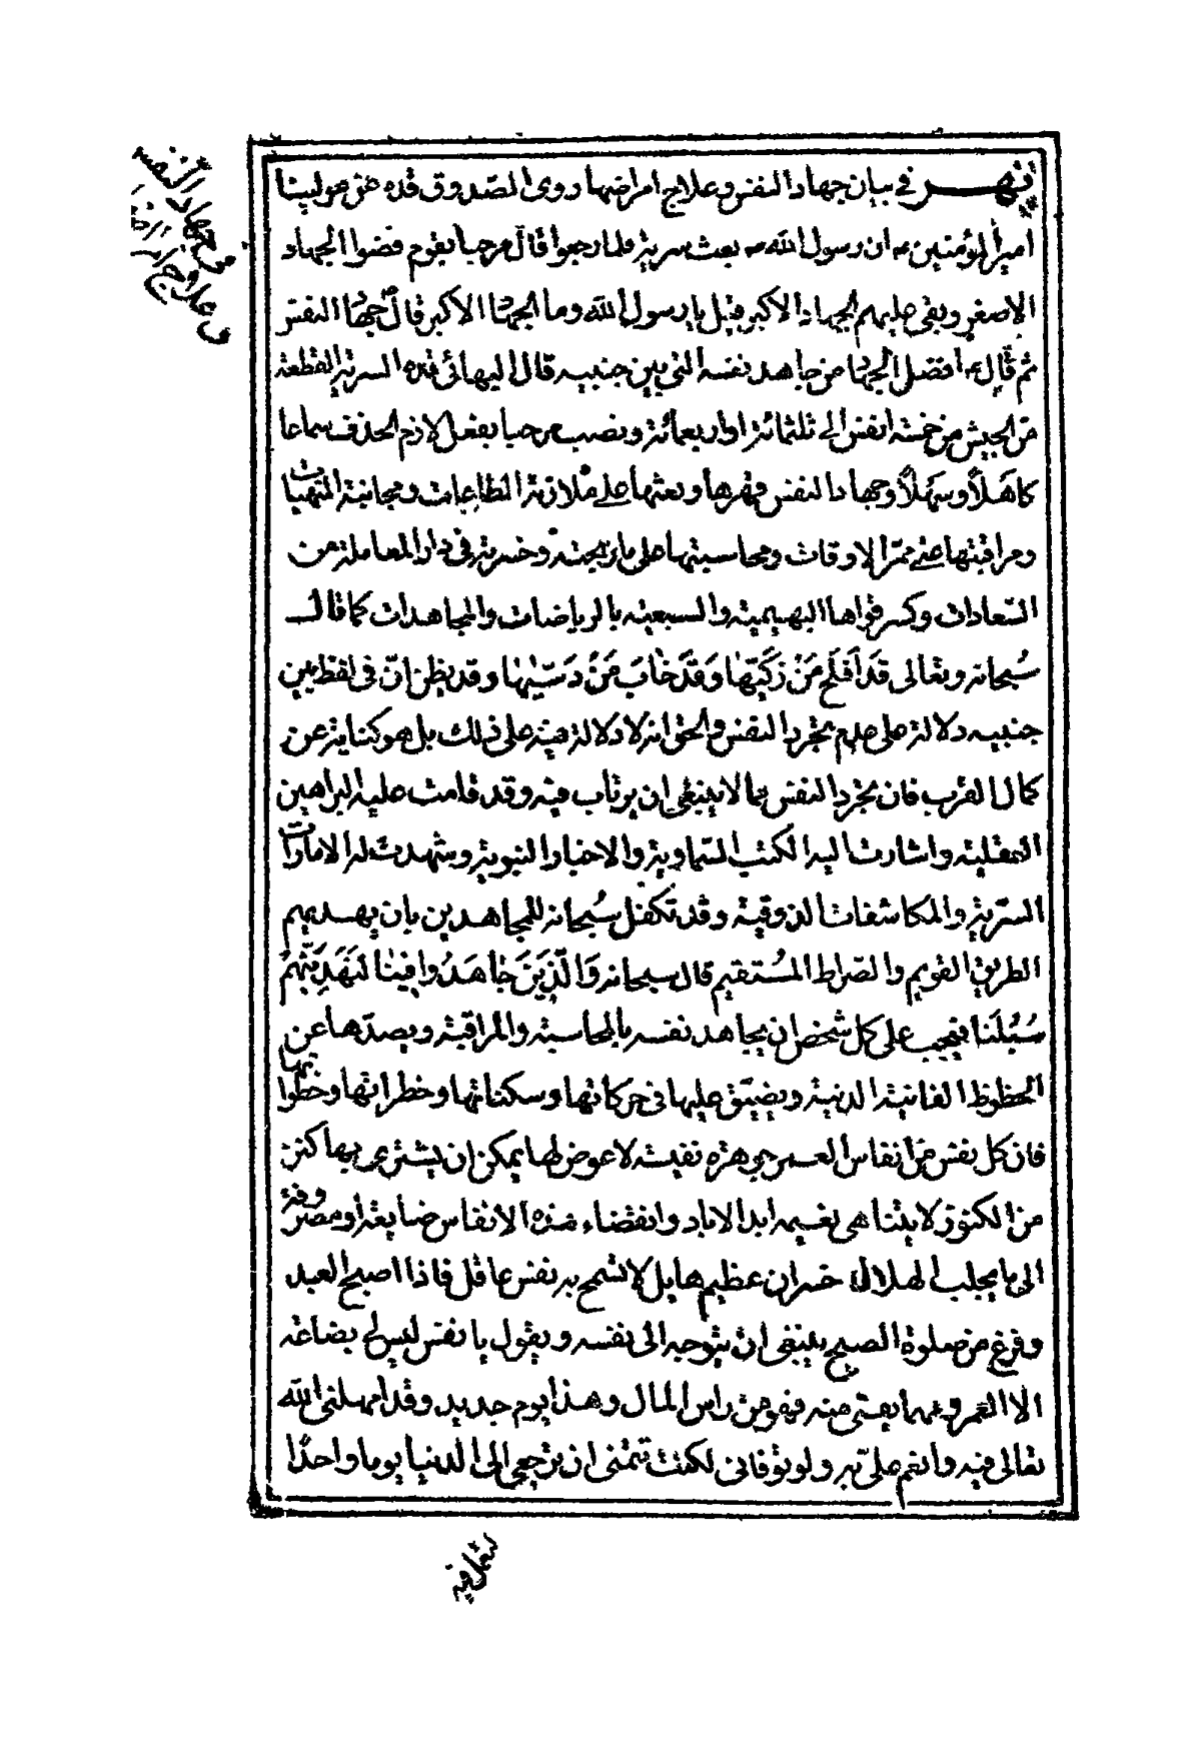 نهر في بيان جهاد النفس وعلاج امراضها روى الصدوق قده عن مولينا
امير المؤمنين ع ان رسول الله ص بعث سرية فلما رجعوا قال مرحبا بقوم قضوا الجهاد
الاصغر وبقى عليهم الجهاد الاكبر قيل يا رسول الله وما الجهاد الاكبر قال جهاد النفس
ثم قال ع افضل الجهاد من جاهد نفسه التي بين جنبيه قال البهائى قده السرية القطعة
من الجيش من خمسة انفس الى ثلثمائة او اربعمائة ونصب مرحبا بفعل لازم الحذف سماعا
كاهلاً وسهلاً وجهاد النفس قهرها وبعثها على ملازمة الطاعات ومجانبة المنهيات
ومراقبتها على ممر الاوقات ومحاسبتها على ما ربحته وخسرته في دار المعاملة من
السعادات وكسر قواها البهيمية والسبعية بالرياضات والمجاهدات كما قال
سُبحانه وتعالى قَد اَفلَحَ مَنْ زَكّيٰهٰا وَقَدْ خٰابَ مَنْ دَسّيٰهٰا وقد يظن انّ فى لفظ بين
جنبيه دلالة على عدم تجرد النفس والحق انه لا دلالة فيه على ذلك بل هو كناية عن
كمال القرب فان تجرد النفس مما لا ينبغى ان يرتاب فيه وقد قامت عليه البراهين
العقلية واشارت اليه الكتب السماوية والاخبار النبوية وشهدت له الامارات
السرية والمكاشفات الذوقية وقد تكفل سُبحانه للمجاهدين بان يهديهم
الطريق القويم والصراط المُستقيم قال سبحانه وَالَّذِينَ جٰاهَدُوا فِينٰا لَنَهْدِيَنَّهُمْ
سُبُلَنٰا فيجب على كل شخص ان يجاهد نفسه بالمحاسبة والمراقبة ويصدّها عن
الحظوظ الفانية الدنية ويضيّق عليها فى حركاتها وسكناتها وخطراتها وخطواتها
فان كل نفس من انفاس العمر جوهرة نفيسة لا عوض لها يمكن ان يشترى بها كنز
من الكنوز لا يتناهى نعيمه ابد الاباد وانقضاء هذه الانفاس ضايعة او مصروفة
الى ما يجلب الهلاك خسران عظيم هايل لا تسمح به نفس عاقل فاذا اصبح العبد
وفرغ من صلوة الصبح ينبغى ان يتوجه الى نفسه ويقول يا نفس ليس لى بضاعة
الا العمر ومهما يفنى منه فهو من راس المال وهذا يوم جديد وقد امهلنى الله
تعالى فيه وانعم علىّ به ولو توفانى لكنت تتمنى ان ترجعى الى الدنيا يوما واحدًا
لتعمل فيه
في جهاد النفس
وعلاج امراضها